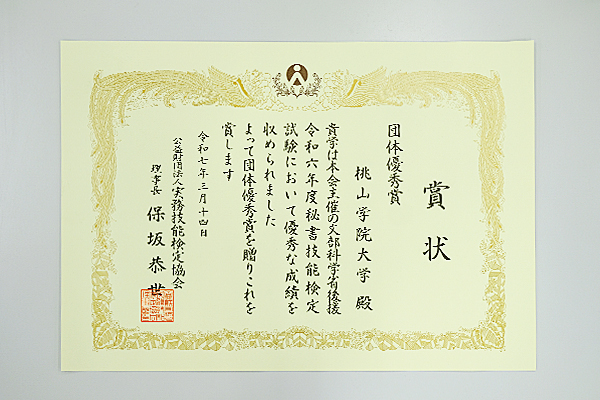 賞状
団体優秀賞
桃山学院大学 殿
貴学は本会主催の文部科学省後援
令和六年度秘書技能検定
試験において優秀な成績を
収められました
よって団体優秀賞を贈りこれを
賞します
令和七年三月十四日
公益財団法人実務技能検定協会
理事長 保坂恭世